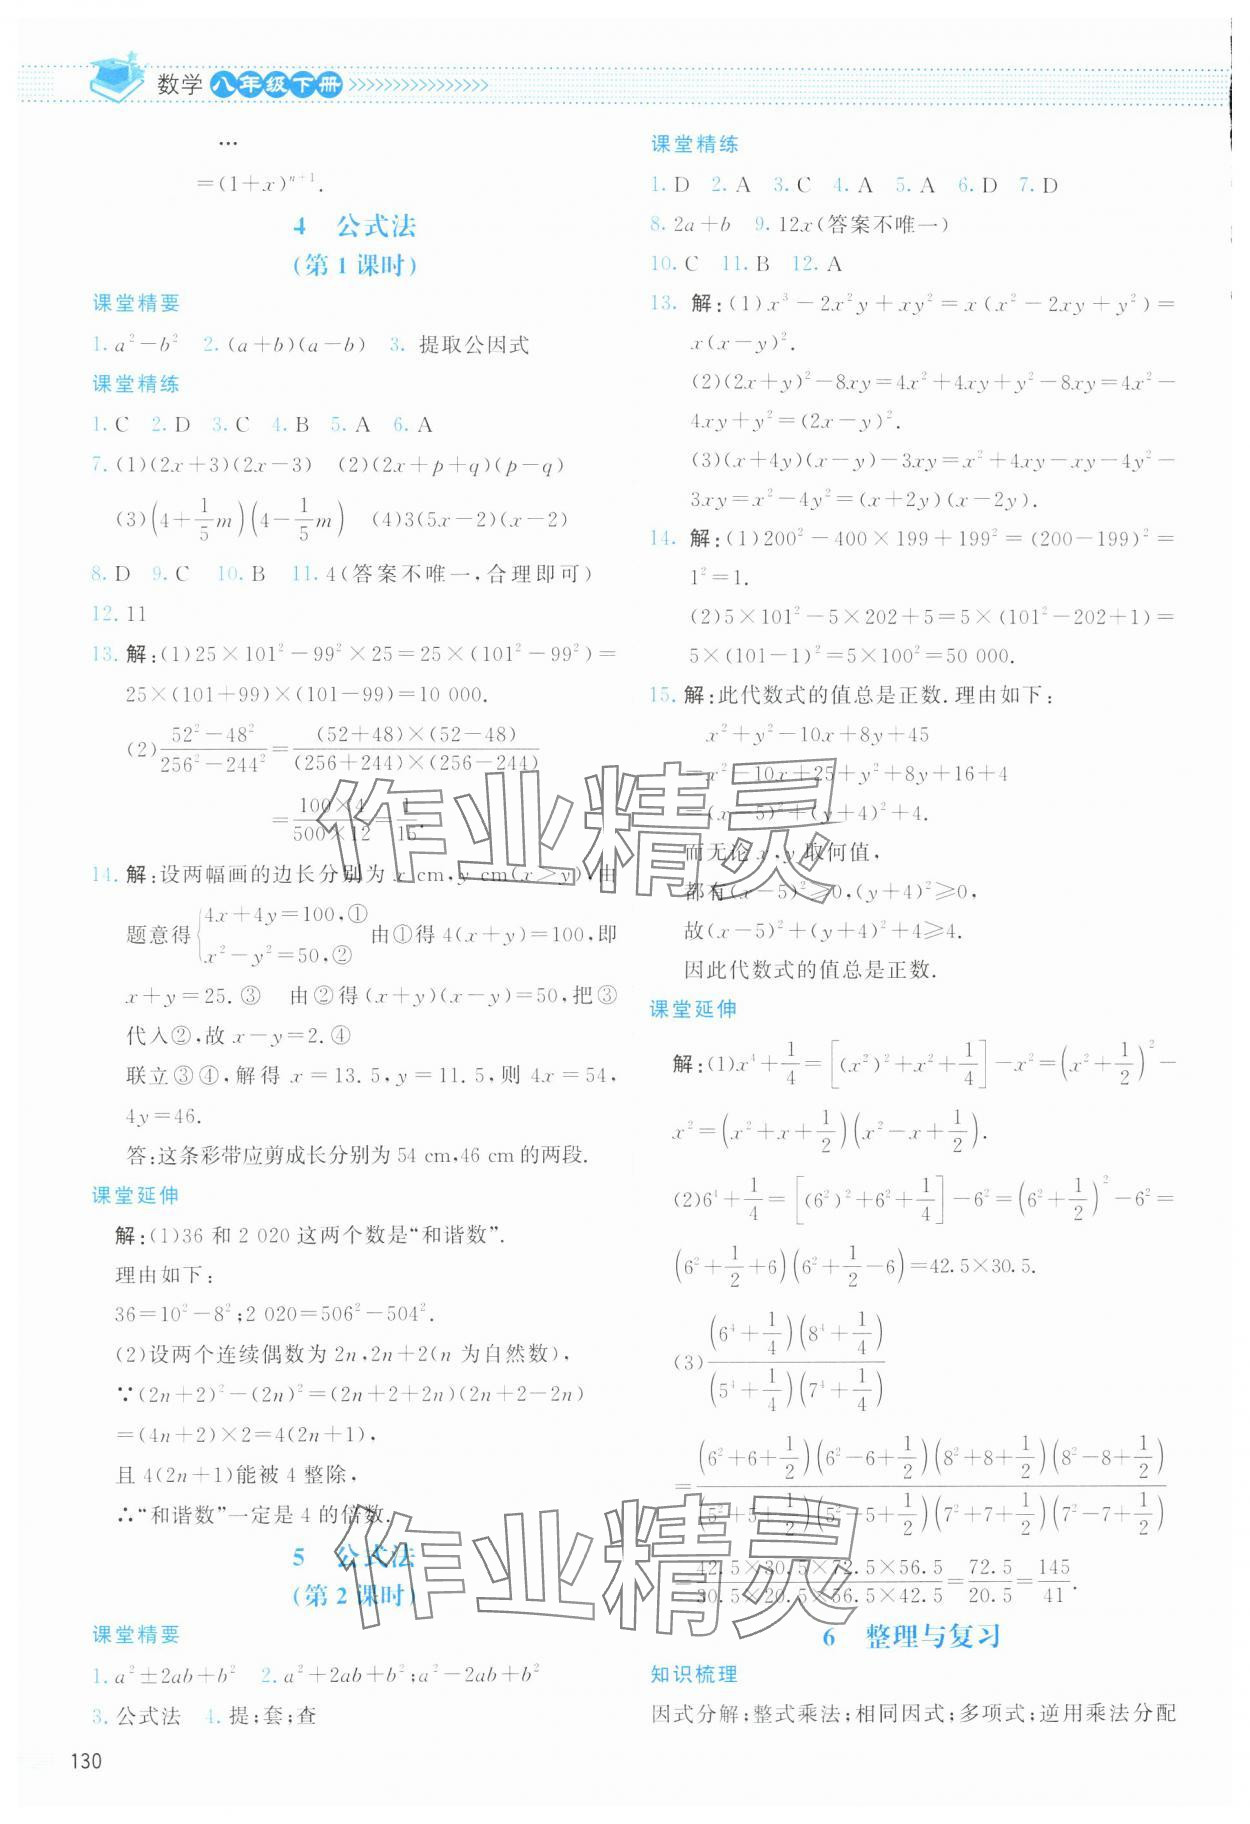 数学 八年级下册 >>>>>>>>>>>>>>>>
…
=(1+x)ⁿ⁺¹.
4 公式法
(第1课时)
课堂精要
1. a²-b² 2. (a+b)(a-b) 3. 提取公因式
课堂精练
1. C 2. D 3. C 4. B 5. A 6. A
7. (1)(2x+3)(2x-3) (2)(2x+p+q)(p-q)
(3)(4+1/5m)(4-1/5m) (4)3(5x-2)(x-2)
8. D 9. C 10. B 11. 4(答案不唯一,合理即可)
12. 11
13. 解:(1)25×101²-99²×25=25×(101²-99²)=
25×(101+99)×(101-99)=10 000.
(2)(52²-48²)/(256²-244²)=((52+48)×(52-48))/((256+244)×(256-244))
=(100×4)/(500×12)=1/15.
14. 解:设两幅画的边长分别为 x cm,y cm(x>y),由
题意得{4x+4y=100,① x²-y²=50,② 由①得 4(x+y)=100,即
x+y=25.③ 由②得(x+y)(x-y)=50,把③
代入②,故 x-y=2.④
联立③④,解得 x=13.5,y=11.5,则 4x=54,
4y=46.
答:这条彩带应剪成长分别为 54 cm,46 cm 的两段.
课堂延伸
解:(1)36 和 2 020 这两个数是“和谐数”.
理由如下:
36=10²-8²;2 020=506²-504².
(2)设两个连续偶数为 2n,2n+2(n 为自然数),
∵(2n+2)²-(2n)²=(2n+2+2n)(2n+2-2n)
=(4n+2)×2=4(2n+1),
且 4(2n+1)能被 4 整除,
∴“和谐数”一定是 4 的倍数.
5 公式法
(第2课时)
课堂精要
1. a²±2ab+b² 2. a²+2ab+b²;a²-2ab+b²
3. 公式法 4. 提;套;查
130
课堂精练
1. D 2. A 3. C 4. A 5. A 6. D 7. D
8. 2a+b 9. 12x(答案不唯一)
10. C 11. B 12. A
13. 解:(1)x³-2x²y+xy²=x(x²-2xy+y²)=
x(x-y)².
(2)(2x+y)²-8xy=4x²+4xy+y²-8xy=4x²-
4xy+y²=(2x-y)².
(3)(x+4y)(x-y)-3xy=x²+4xy-xy-4y²-
3xy=x²-4y²=(x+2y)(x-2y).
14. 解:(1)200²-400×199+199²=(200-199)²=
1²=1.
(2)5×101²-5×202+5=5×(101²-202+1)=
5×(101-1)²=5×100²=50 000.
15. 解:此代数式的值总是正数.理由如下:
x²+y²-10x+8y+45
=x²-10x+25+y²+8y+16+4
=(x-5)²+(y+4)²+4.
而无论 x,y 取何值,
都有(x-5)²≥0,(y+4)²≥0,
故(x-5)²+(y+4)²+4≥4.
因此代数式的值总是正数.
课堂延伸
解:(1)x⁴+1/4=[(x²)²+x²+1/4]-x²=(x²+1/2)²-
x²=(x²+x+1/2)(x²-x+1/2).
(2)6⁴+1/4=[(6²)²+6²+1/4]-6²=(6²+1/2)²-6²=
(6²+1/2+6)(6²+1/2-6)=42.5×30.5.
(3)((6⁴+1/4)(8⁴+1/4))/((5⁴+1/4)(7⁴+1/4))
=((6²+6+1/2)(6²-6+1/2)(8²+8+1/2)(8²-8+1/2))/((5²+5+1/2)(5²-5+1/2)(7²+7+1/2)(7²-7+1/2))
=(42.5×30.5×72.5×56.5)/(30.5×20.5×56.5×42.5)=72.5/20.5=145/41.
6 整理与复习
知识梳理
因式分解;整式乘法;相同因式;多项式;逆用乘法分配
作业精灵
作业精灵